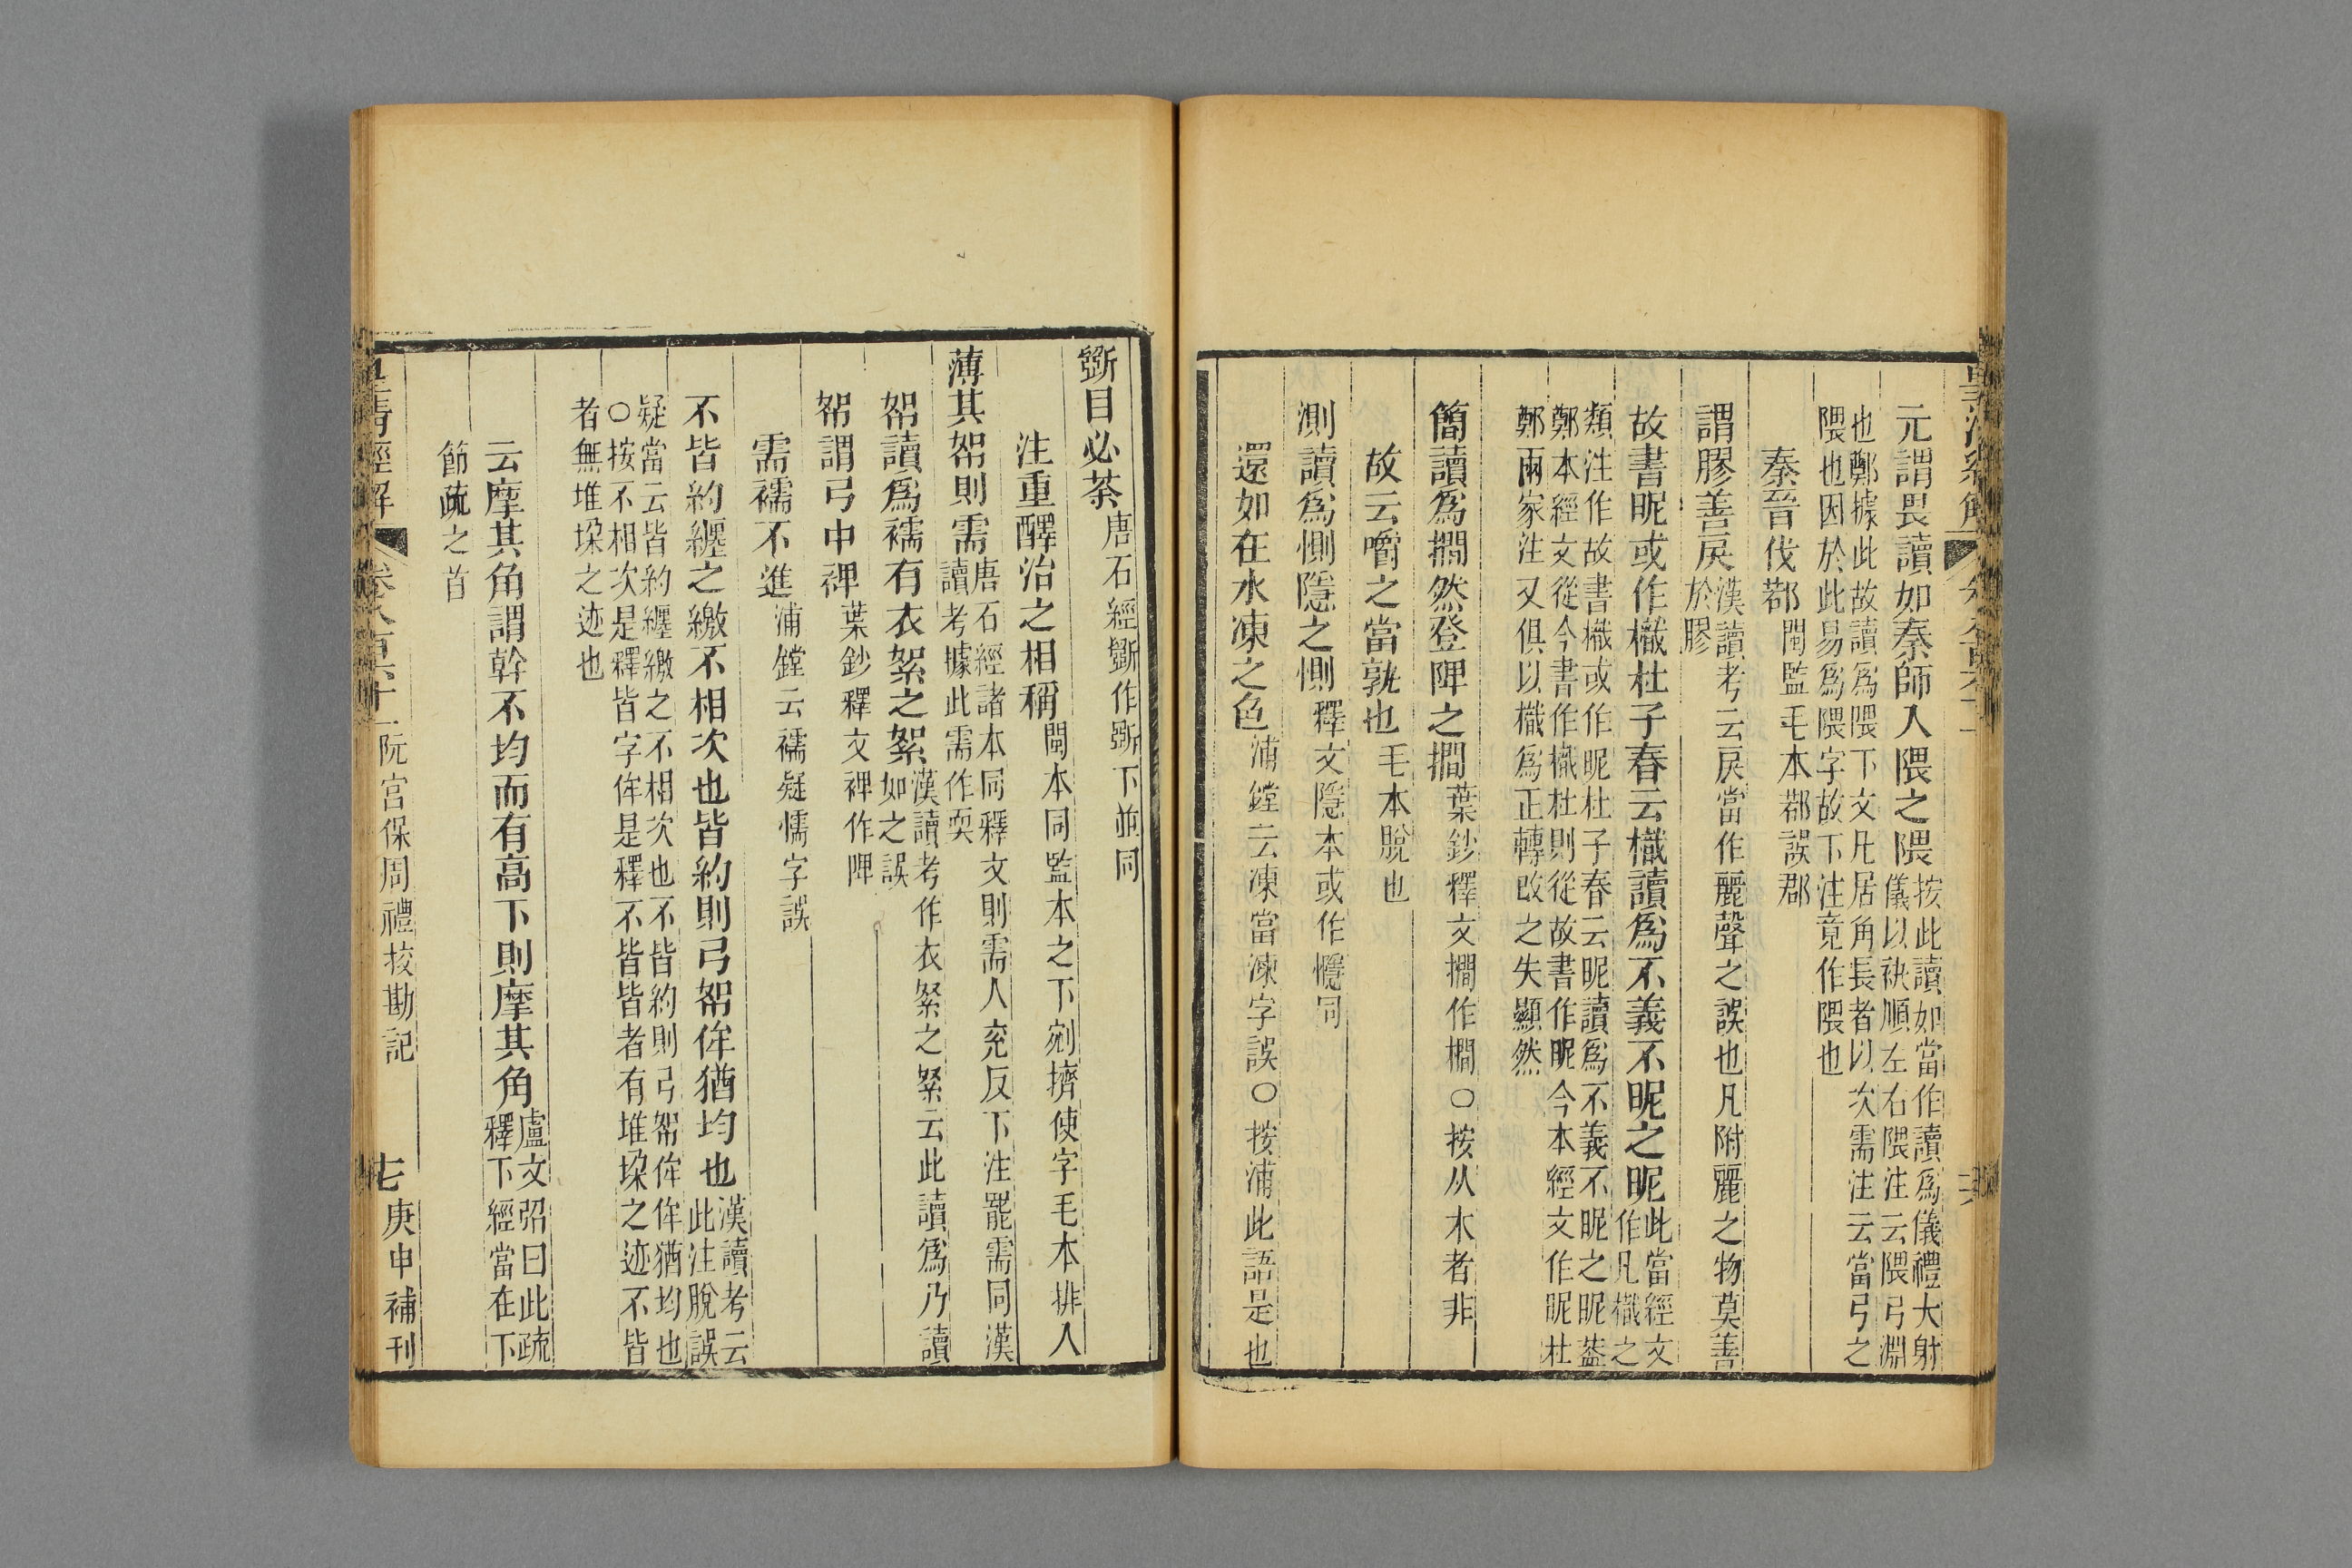 元謂畏讀如秦師入隈之隈按此讀如當作讀爲儀禮大射儀以袂順左右隈注云隈弓淵
也鄭據此故讀爲隈下文凡居角長者以次需注云當弓之隈也因於此易爲隈字故下注竟作隈也
秦晉伐鄀閩監毛本鄀誤郡
謂膠善戾漢讀考云戾當作麗聲之誤也凡附麗之物莫善於膠
故書昵或作樴杜子春云樴讀爲不義不昵之昵此當經文作凡樴之
類注作故書樴或作昵杜子春云昵讀爲不義不昵之昵葢鄭本經文從今書作樴杜則從故書作昵今本經文作昵杜
鄭兩家注又俱以樴爲正轉改之失顯然
簡讀爲撊然登陴之撊葉鈔釋文撊作橺○按从木者非
故云嚼之當孰也毛本脫也
測讀爲惻隱之惻釋文隱本或作㥯同
還如在水凍之色浦鏜云凍當湅字誤○按浦此語是也
斲目必荼唐石經斵作斲下並同
注重醳治之相稱閩本同監本之下剜擠使字毛本排人
薄其帤則需唐石經諸本同釋文則需人兗反下注罷需同漢讀考據此需作耎
帤讀爲襦有衣絮之絮漢讀考作衣袽之袽云此讀爲乃讀如之誤
帤謂弓中裨葉鈔釋文裨作陴
需襦不進浦鏜云襦疑懦字誤
不皆約纏之繳不相次也皆約則弓帤侔猶均也漢讀考云此注脫誤
疑當云皆約纏繳之不相次也不皆約則弓帤侔侔猶均也○按不相次是釋皆字侔是釋不皆皆者有堆垛之迹不皆
者無堆垛之迹也
云摩其角謂幹不均而有高下則摩其角盧文弨曰此疏釋下經當在下
節疏之首
皇清經解 卷八百六十一 阮宮保周禮挍勘記 七 庚申補刊